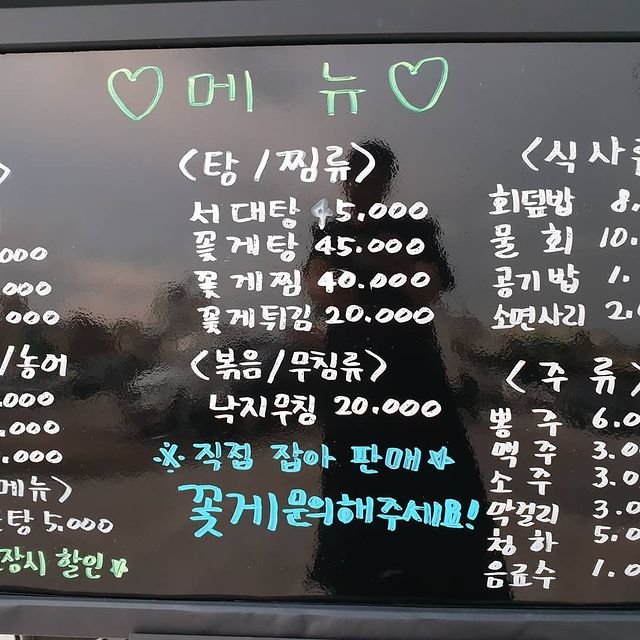 ♡ 메 뉴 ♡
>
000
000
000
/농어
.000
.000
.000
메뉴>
탕 5.000
장시 할인☆
<탕/찜류>
서대탕 45.000
꽃게탕 45.000
꽃게찜 40.000
꽃게튀김 20.000
<볶음/무침류>
낙지무침 20.000
※ 직접 잡아 판매☆
꽃게문의해주세요!
<식사류
회덮밥 8.
물 회 10.
공기밥 1.
소면사리 2.0
<주 류>
뽕 주 6.0
맥 주 3.0
소 주 3.0
막걸리 3.0
청 하 5.0
음료수 1.0